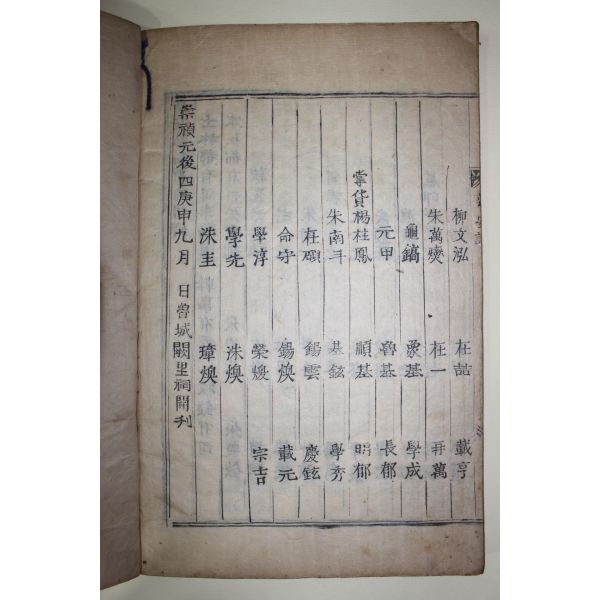 柳文泓 在喆 載亨
朱萬爕 在一 再萬
龜鎬 象基 學成
元甲 魯基 長郁
掌貨楊桂鳳 順基 明郁
朱南斗 基鉉 學秀
在碩 錫雲 慶鉉
命守 錫煥 載元
學淳 榮煖 宗吉
學先 洙煥
洙圭 璋煥
崇禎元後四庚申九月 日魯城闕里祠開刋